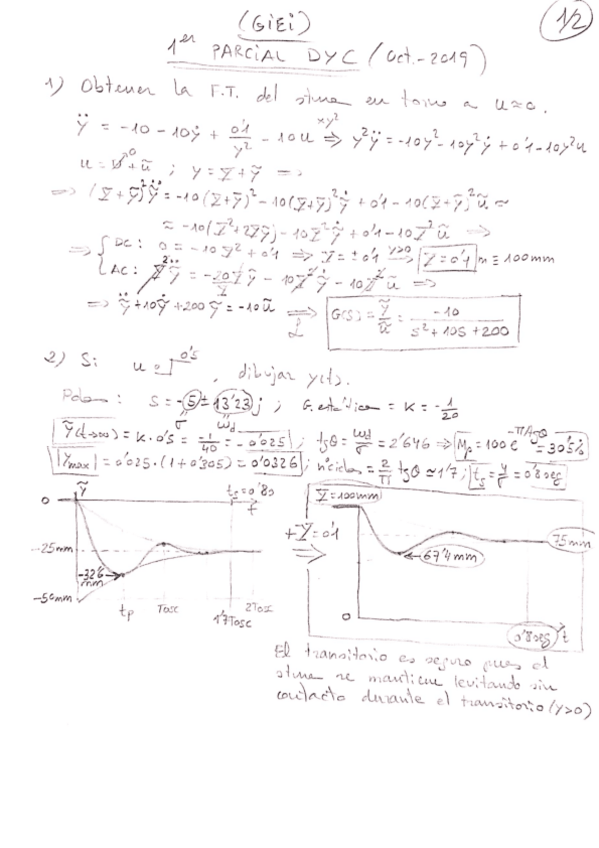 (GIEI)
1/2
1er PARCIAL DYC (Oct.-2019)
1) Obtener la F.T. del stma en torno a u≈0.
ÿ = -10 - 10ẏ + 0'1/y² - 10u ⇒ (×y²) y²ÿ = -10y² - 10y²ẏ + 0'1 - 10y²u
u = U⁰ + ũ ; y = Y + ỹ ⇒
⇒ (Y+ỹ)²ỹ̈ = -10(Y+ỹ)² - 10(Y+ỹ)²ỹ̇ + 0'1 - 10(Y+ỹ)²ũ ≈
≈ -10(Y²+2Yỹ) - 10Y²ỹ̇ + 0'1 - 10Y²ũ ⇒
⇒ { DC: 0 = -10Y² + 0'1 ⇒ Y = ±0'1 (y>0) → Y = 0'1 m ≡ 100mm
AC: Y²ỹ̈ = -20/Y ỹ - 10Y²ỹ̇ - 10Y²ũ ⇒
⇒ ỹ̈ + 10ỹ̇ + 200ỹ = -10ũ ⇒ (L) G(s) = ỹ/ũ = -10/(s² + 10s + 200)
2) Si u = 0'5, dibujar y(t).
Polos: s = -5 ± 13'23j ; G.estática = K = -1/20
σ ωd
ỹ(t→∞) = K·0'5 = -1/40 = -0'025 ; tgθ = ωd/σ = 2'646 ⇒ Mp = 100e^(-π/tgθ) = 30'5%
|ỹmax| = 0'025·(1+0'305) = 0'0326 ; nºciclos = 2/π tgθ ≃ 1'7 ; ts = 4/σ = 0'8seg
0 ỹ ts = 0'8s t
-25mm
-32'6 mm
-50mm
tp Tosc 1'7Tosc 2Tosc
+Y=0'1 ⇒
Y=100mm
75mm
67'4mm
0
0'8seg t
El transitorio es seguro pues el
stma se mantiene levitando sin
contacto durante el transitorio (y>0)